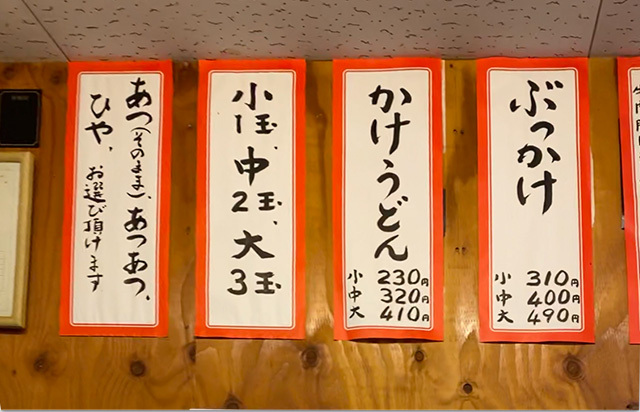 あつ(そのまま)、あつあつ、
ひや、
お選び頂けます
小1玉、中2玉、大3玉
かけうどん
小 230円
中 320円
大 410円
ぶっかけ
小 310円
中 400円
大 490円